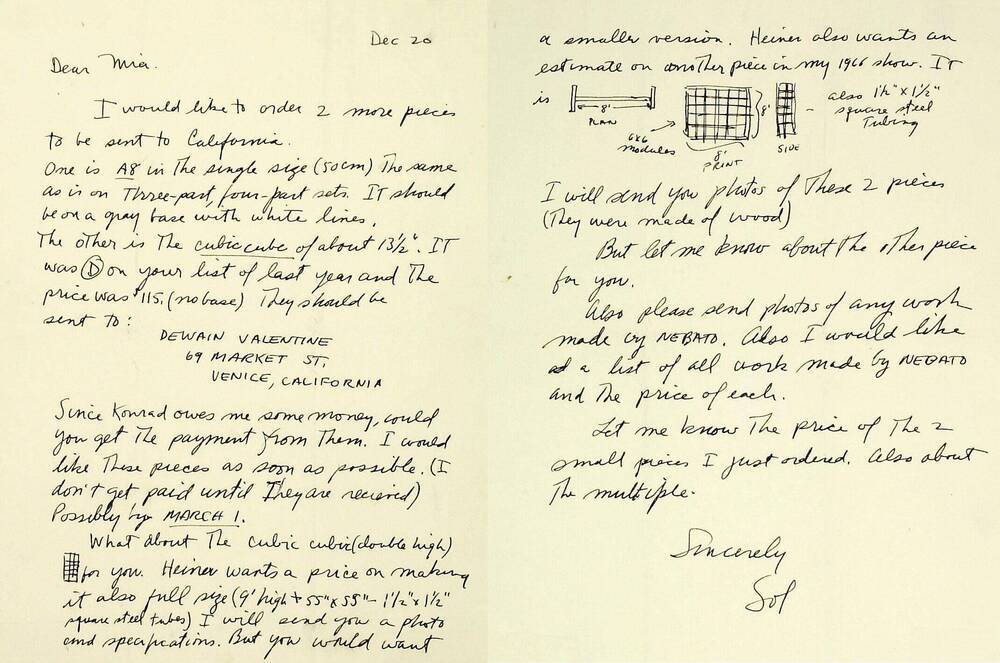 Dec 20
Dear Mia.
I would like to order 2 more pieces
to be sent to California.
One is A8 in the single size (50cm) The same
as is on Three-part, four-part sets. IT should
be on a gray base with white lines.
The other is The cubic cube of about 13½". IT
was D on your list of last year and The
price was $115. (no base) They should be
sent to:
DEWAIN VALENTINE
69 MARKET ST.
VENICE, CALIFORNIA
Since Konrad owes me some money, could
you get The payment from Them. I would
like These pieces as soon as possible. (I
don't get paid until They are recieved)
Possibly by MARCH 1.
What about The cubic cubic (double high)
for you. Heiner wants a price on making
it also full size (9' high + 55" x 55" - 1½" x 1½"
square steel tubes) I will send you a photo
and specifications. But you would want
a smaller version. Heiner also wants an
estimate on another piece in my 1966 show. IT
is
8'
PLAN
6x6
modules
8'
8'
PRINT
SIDE
- also 1½" x 1½"
square steel
Tubing
I will send you photos of These 2 pieces
(They were made of wood)
But let me know about The other piece
for you.
Also please send photos of any work
made by NEBATO. Also I would like
a list of all work made by NEBATO
and The price of each.
Let me know The price of The 2
small pieces I just ordered. Also about
The multiple.
Sincerely
Sol